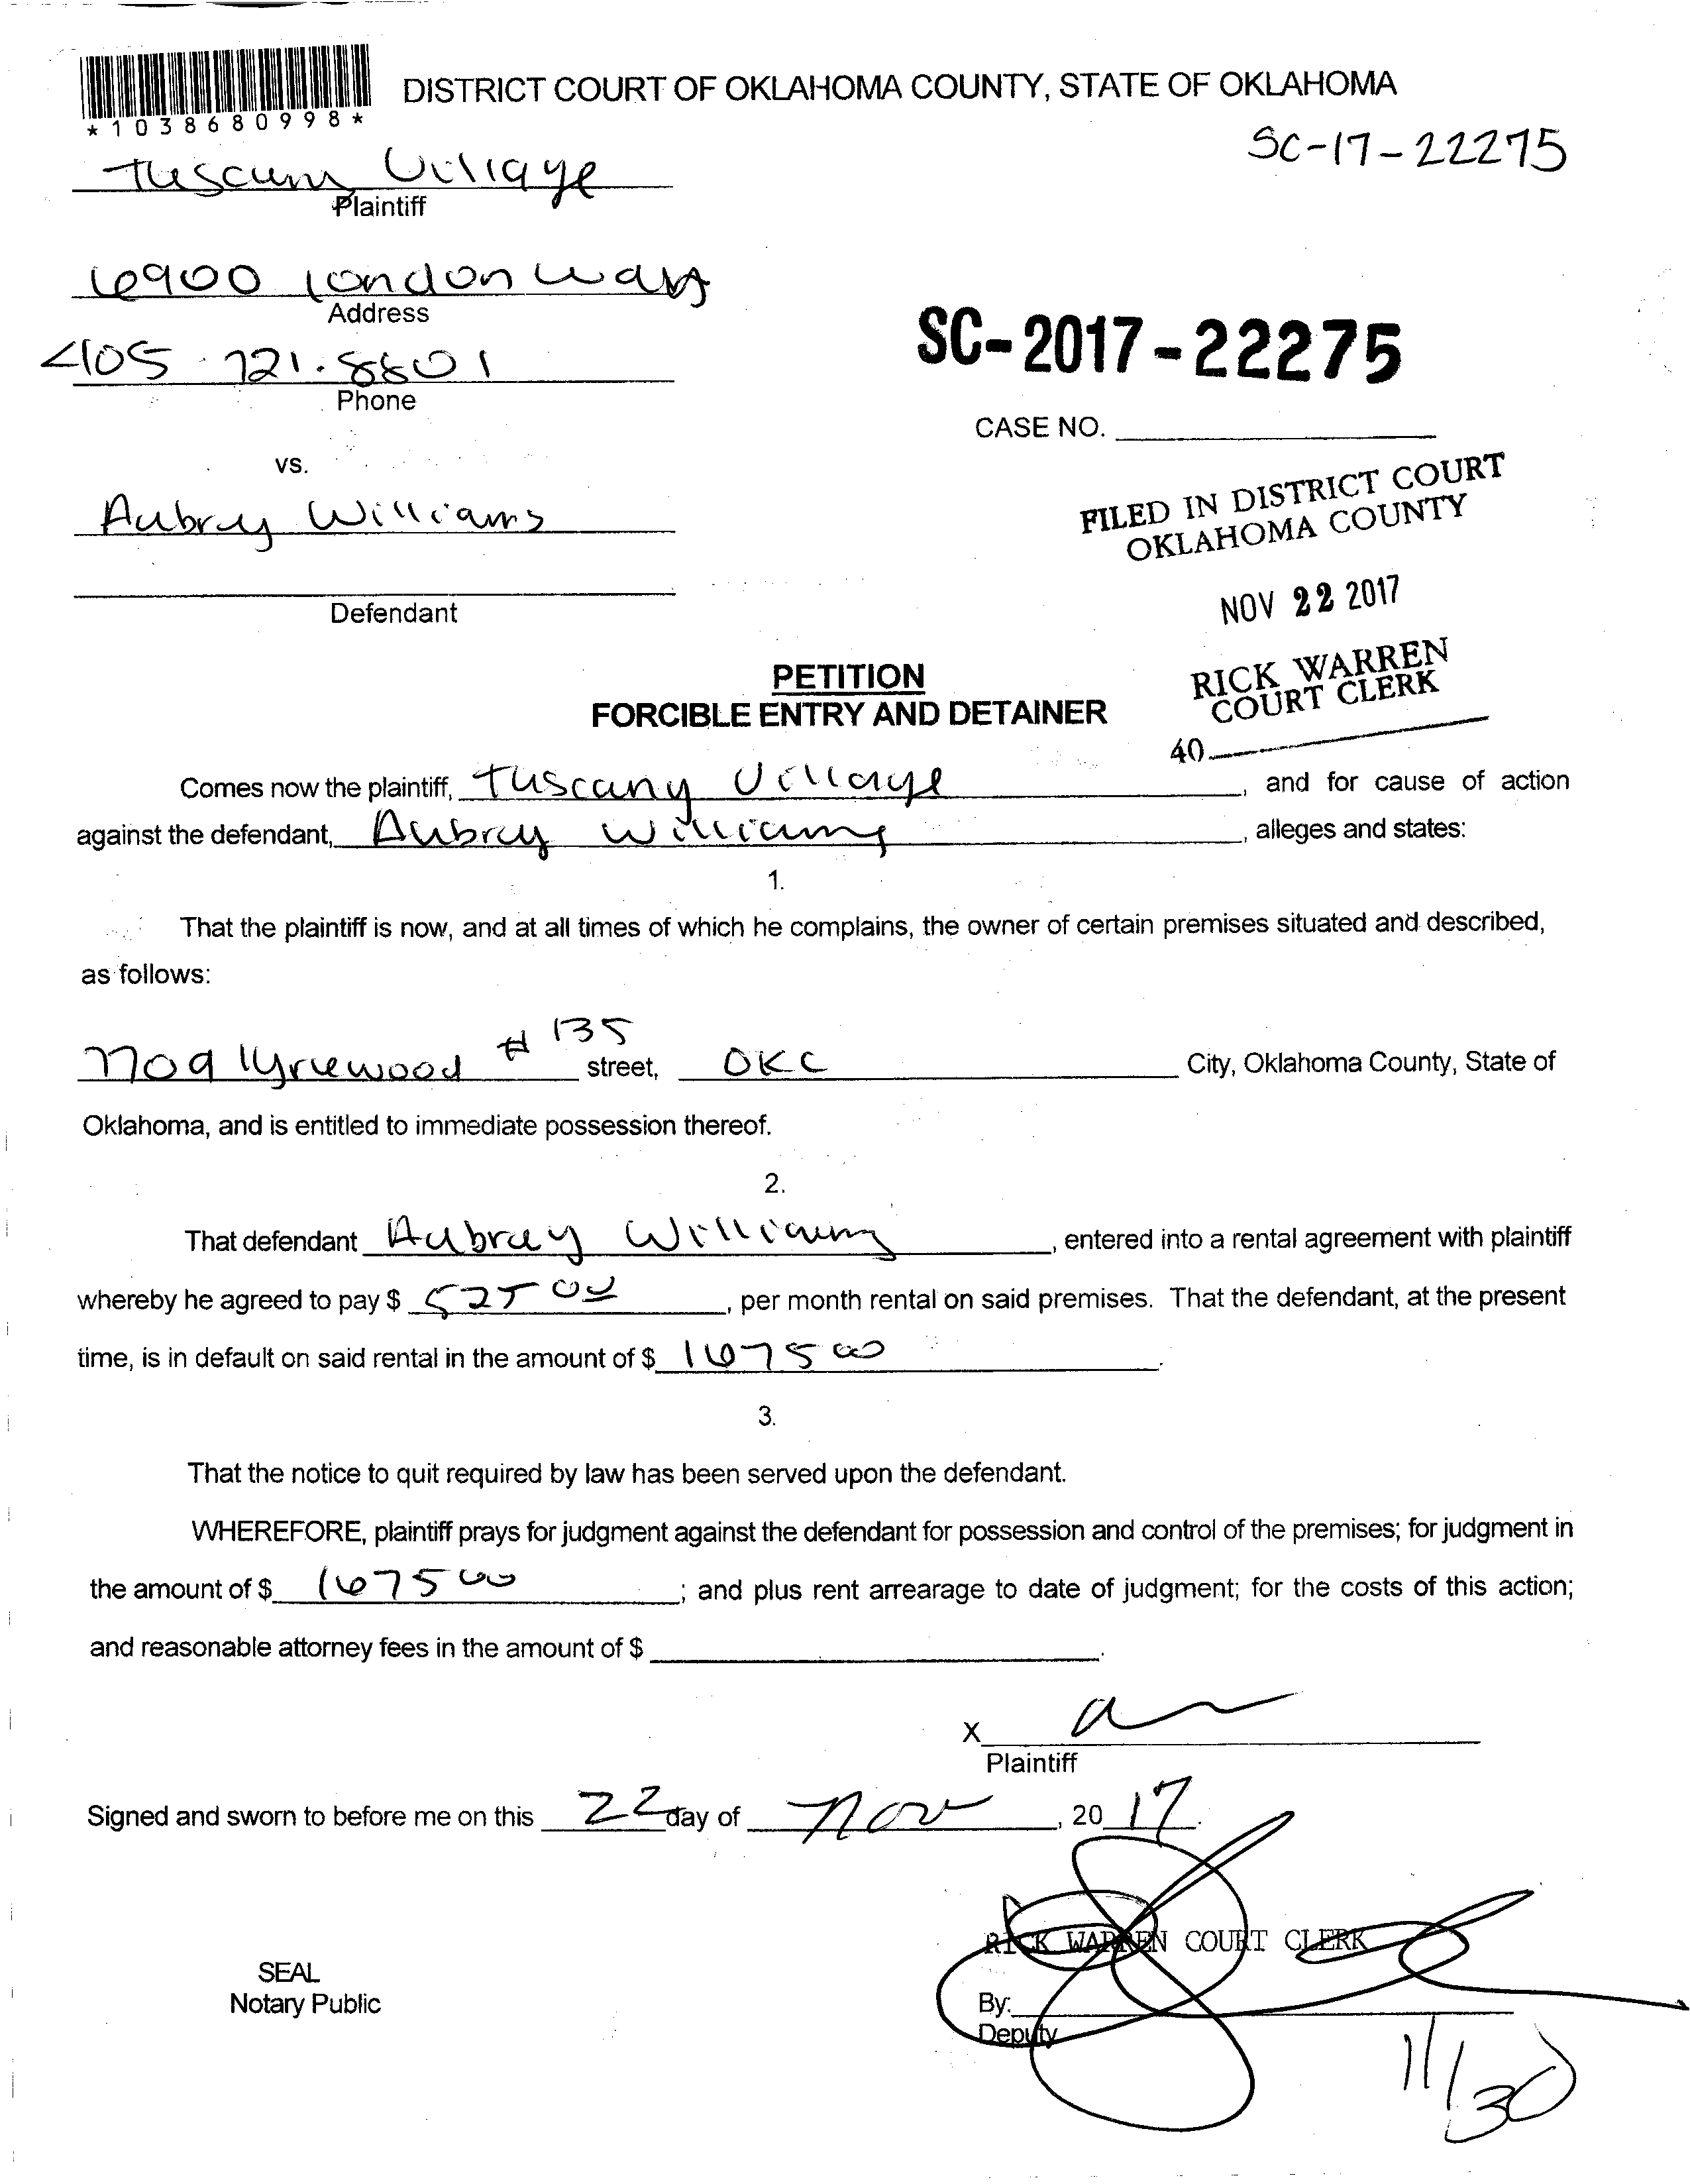 DISTRICT COURT OF OKLAHOMA COUNTY, STATE OF OKLAHOMA
*1038680998*
SC-17-22275
Tuscany Village
Plaintiff
6900 London Way
Address
405.721.8801
Phone
SC-2017-22275
CASE NO.
vs.
FILED IN DISTRICT COURT
OKLAHOMA COUNTY
Aubrey Williams
NOV 22 2017
Defendant
RICK WARREN
COURT CLERK
PETITION
FORCIBLE ENTRY AND DETAINER
40
Comes now the plaintiff, Tuscany Village, and for cause of action
against the defendant, Aubrey Williams, alleges and states:
1.
That the plaintiff is now, and at all times of which he complains, the owner of certain premises situated and described,
as follows:
7709 Lyrewood #135 street, OKC City, Oklahoma County, State of
Oklahoma, and is entitled to immediate possession thereof.
2.
That defendant Aubrey Williams, entered into a rental agreement with plaintiff
whereby he agreed to pay $ 525 00, per month rental on said premises. That the defendant, at the present
time, is in default on said rental in the amount of $ 1675 00.
3.
That the notice to quit required by law has been served upon the defendant.
WHEREFORE, plaintiff prays for judgment against the defendant for possession and control of the premises; for judgment in
the amount of $ 1675 00; and plus rent arrearage to date of judgment; for the costs of this action;
and reasonable attorney fees in the amount of $ .
X
Plaintiff
Signed and sworn to before me on this 22 day of Nov, 20 17.
RICK WARREN COURT CLERK
SEAL
Notary Public
By:
Deputy
11/30